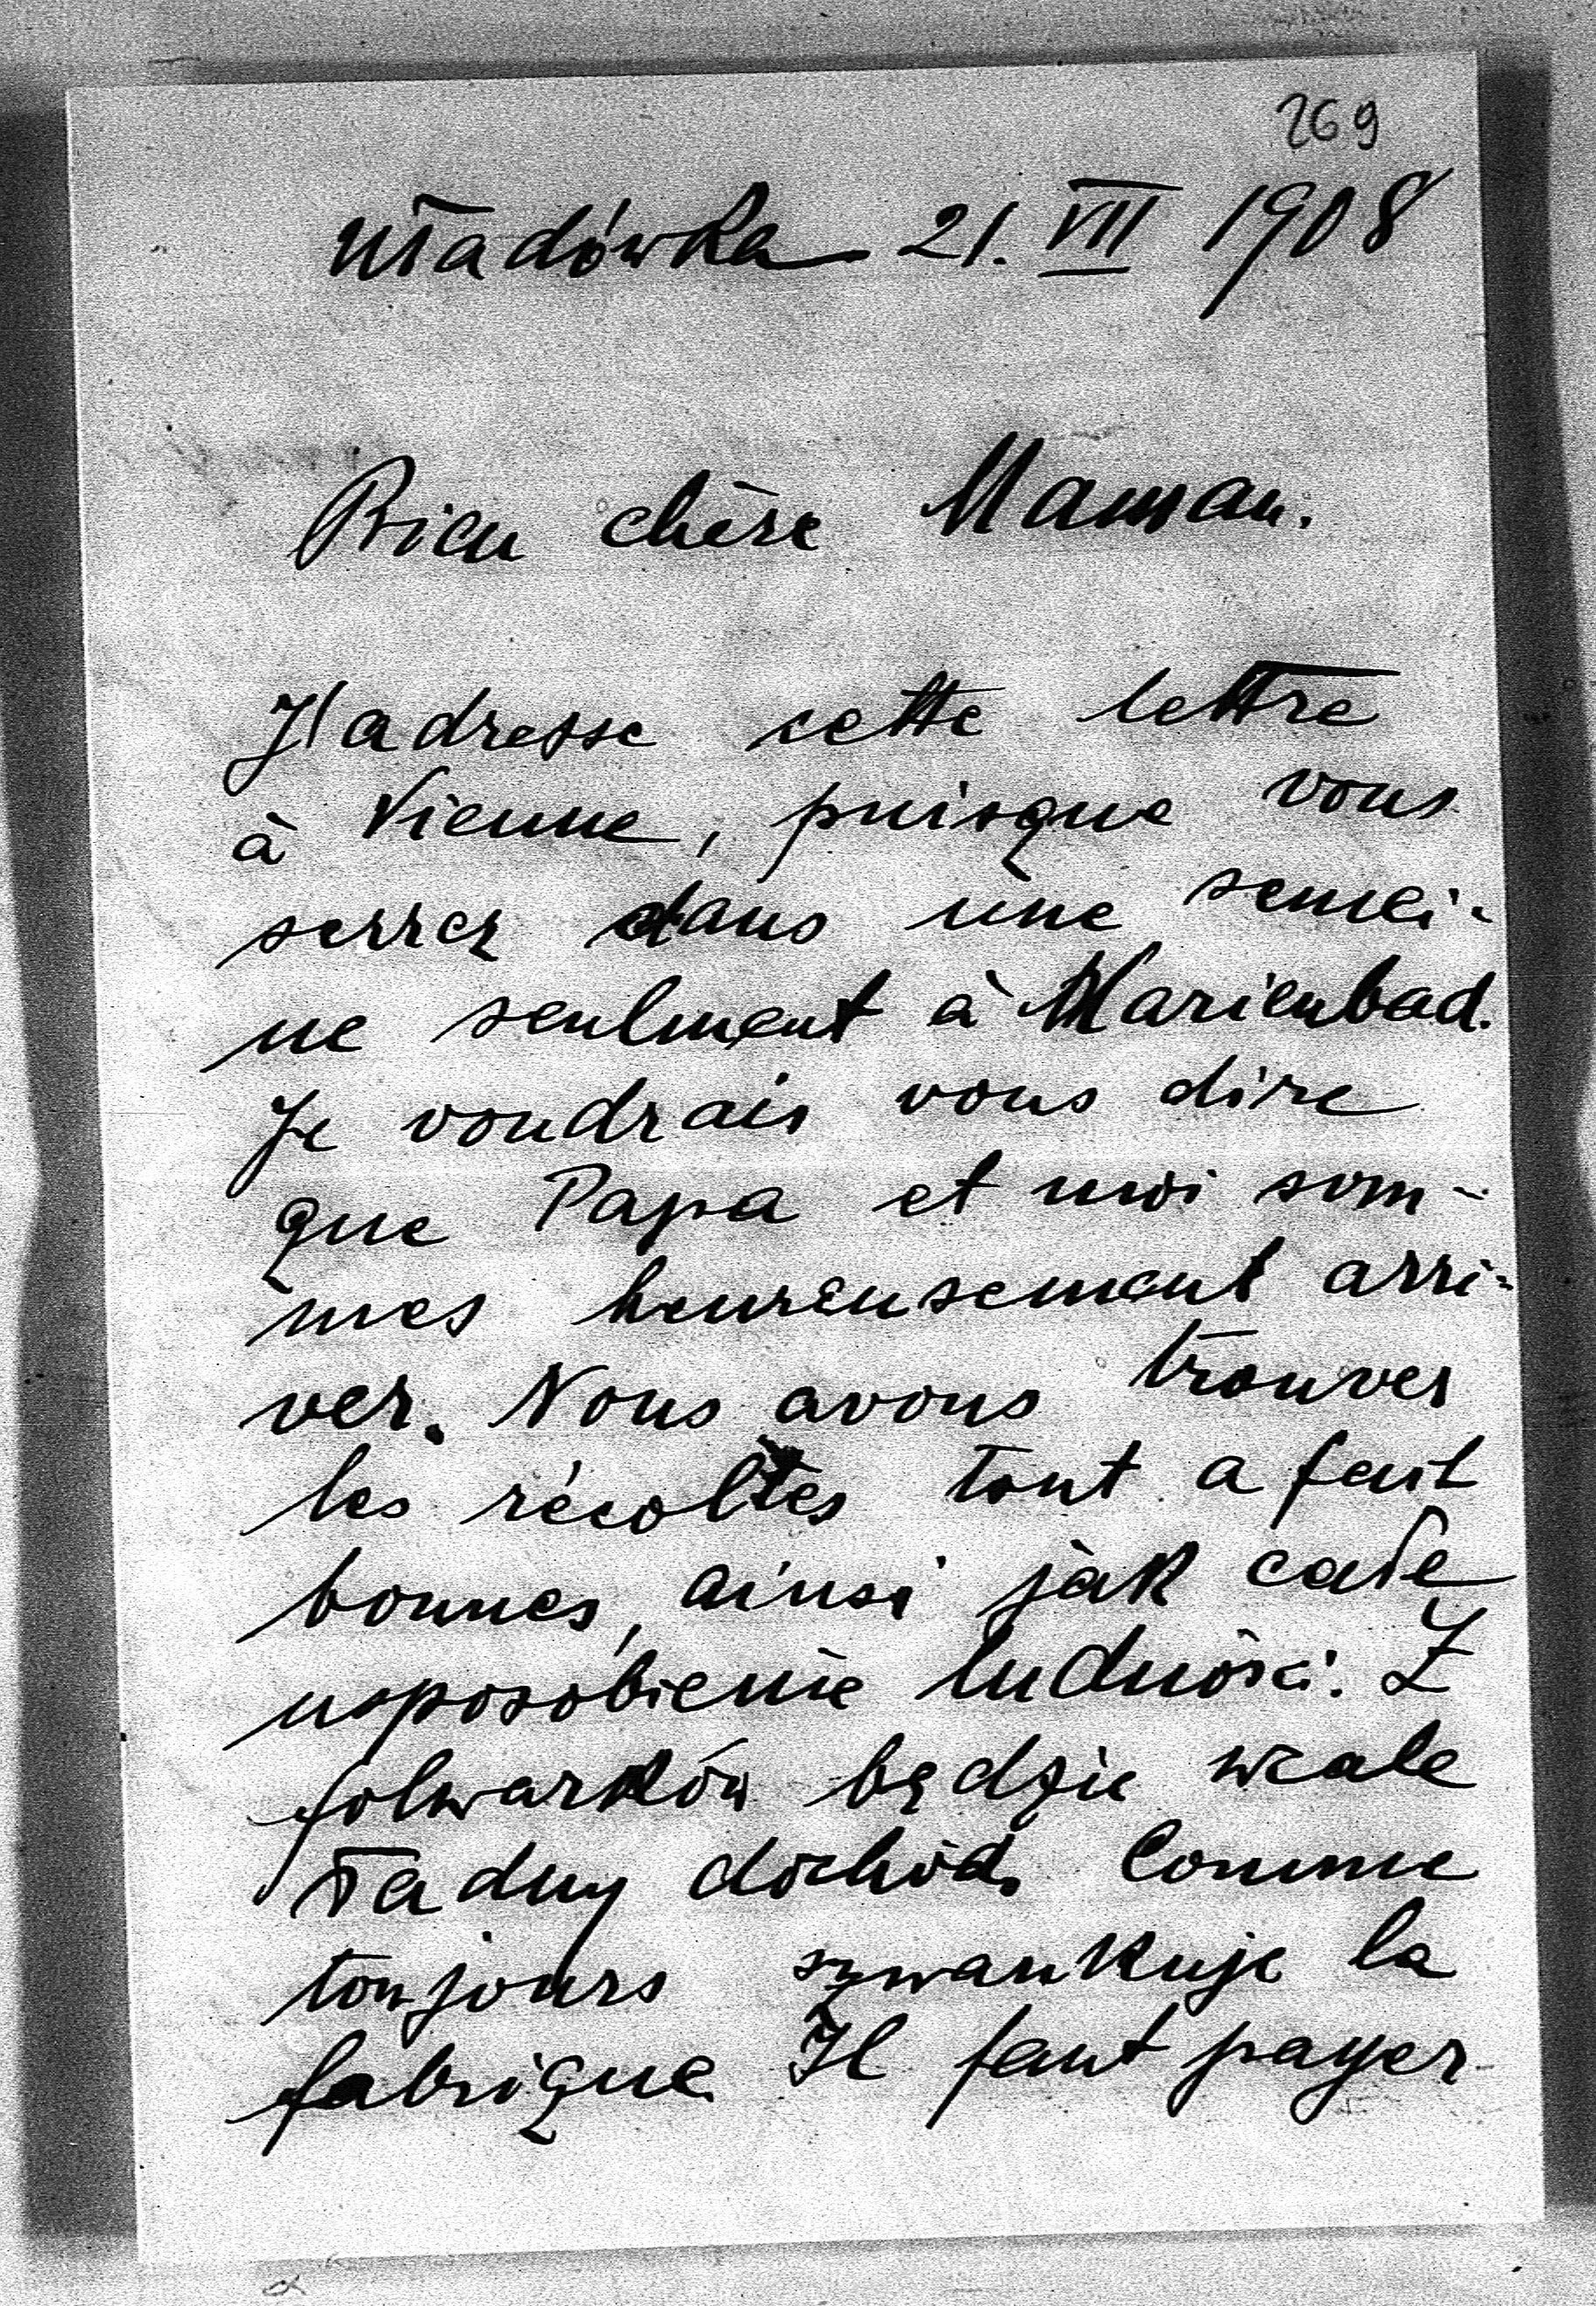 269
Uładówka 21. VII 1908
Bien chère Maman.
J'adresse cette lettre
à Vienne, puisque vous
serrez dans une semei-
ne seulment à Marienbad.
Je voudrais vous dire
que Papa et moi som-
mes heureusement arri-
ver. Nous avons trouver
les récoltes tout a fait
bonnes, ainsi jak całe
usposobienie ludności. Z
folwarków będzie wcale
ładny dochód. Comme
toujours szwankuje la
fabrique. Il faut payer